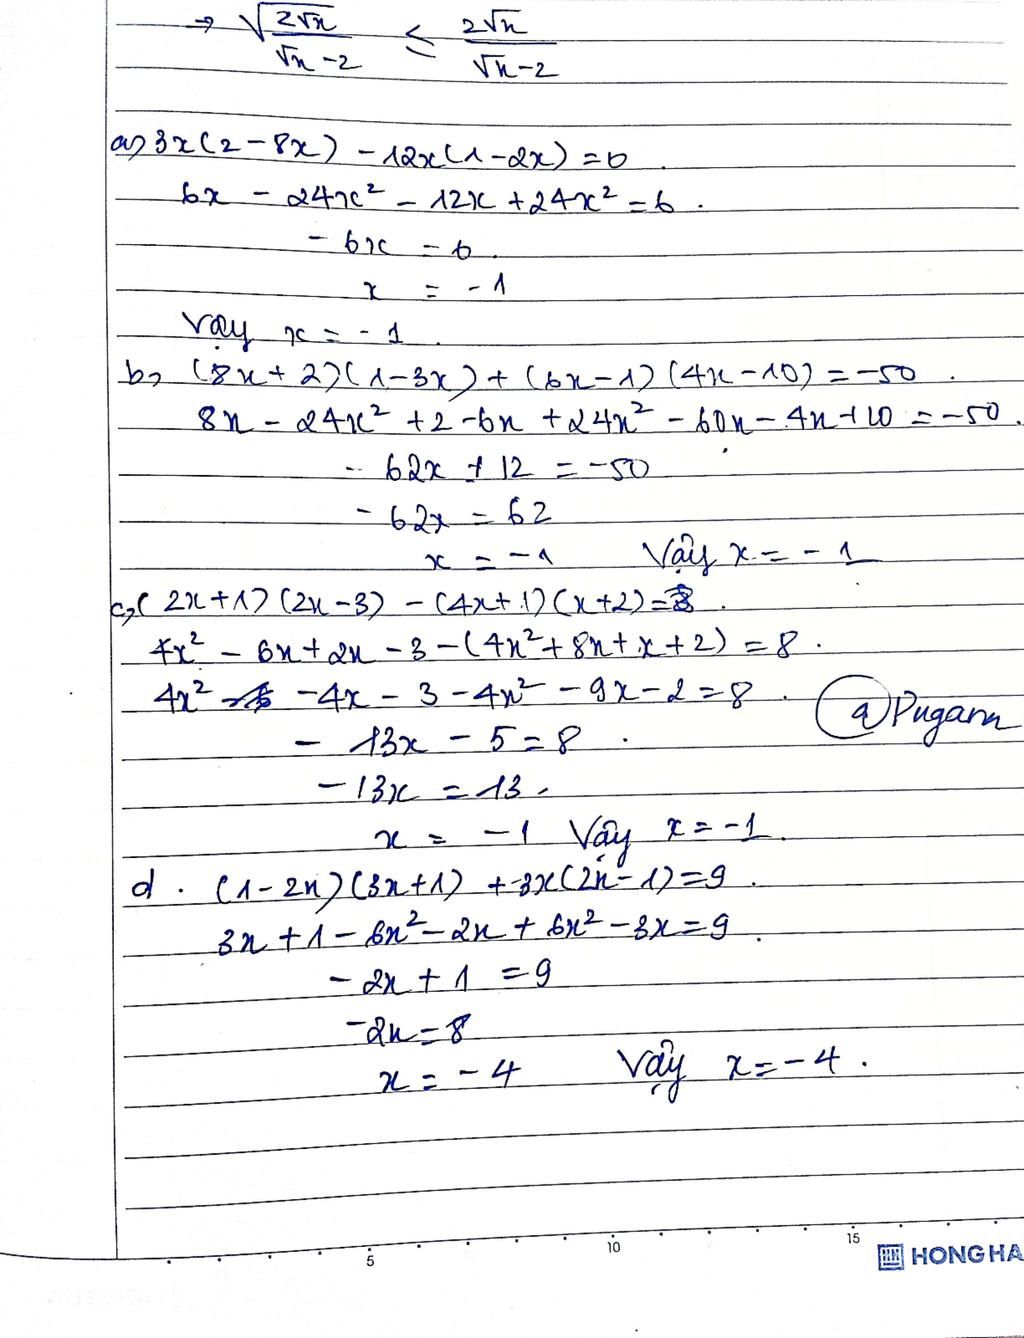 → √(2√x/(√x-2)) ≤ 2√x/(√x-2)
a) 3x(2-8x) - 12x(1-2x) = 6
6x - 24x² - 12x + 24x² = 6.
- 6x = 6.
x = -1
Vậy x = -1.
b, (8x+2)(1-3x) + (6x-1)(4x-10) = -50.
8x - 24x² + 2 - 6x + 24x² - 60x - 4x + 10 = -50.
- 62x + 12 = -50
- 62x = 62
x = -1 Vậy x = -1
c, (2x+1)(2x-3) - (4x+1)(x+2) = 8.
4x² - 6x + 2x - 3 - (4x² + 8x + x + 2) = 8.
4x² - 4x - 3 - 4x² - 9x - 2 = 8.
@Pugann
- 13x - 5 = 8.
- 13x = 13.
x = -1 Vậy x = -1.
d. (1-2x)(3x+1) + 3x(2x-1) = 9.
3x + 1 - 6x² - 2x + 6x² - 3x = 9.
- 2x + 1 = 9
-2x = 8
x = -4 Vậy x = -4.
5 10 15
HONG HA